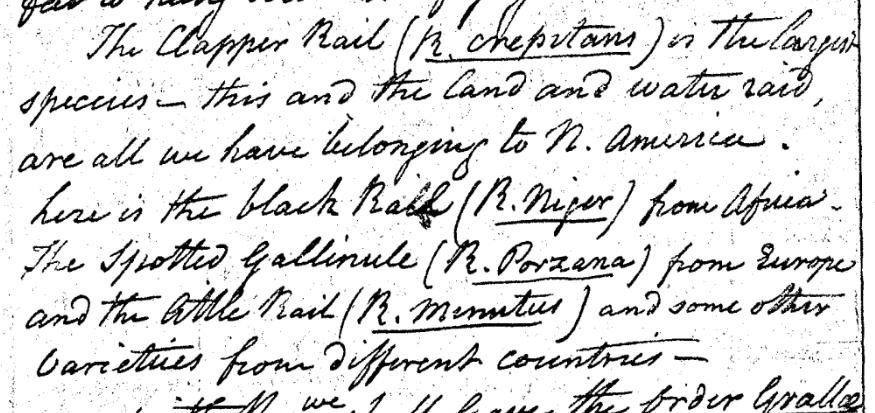 The Clapper Rail (R. crepitans) is the largest
species — this and the land and water raid,
are all we have belonging to N. America.
here is the black Rail (R. Niger) from Africa —
The Spotted Gallinule (R. Porzana) from Europe
and the little Rail (R. Minutus) and some other
varieties from different countries —
we the order Grallae